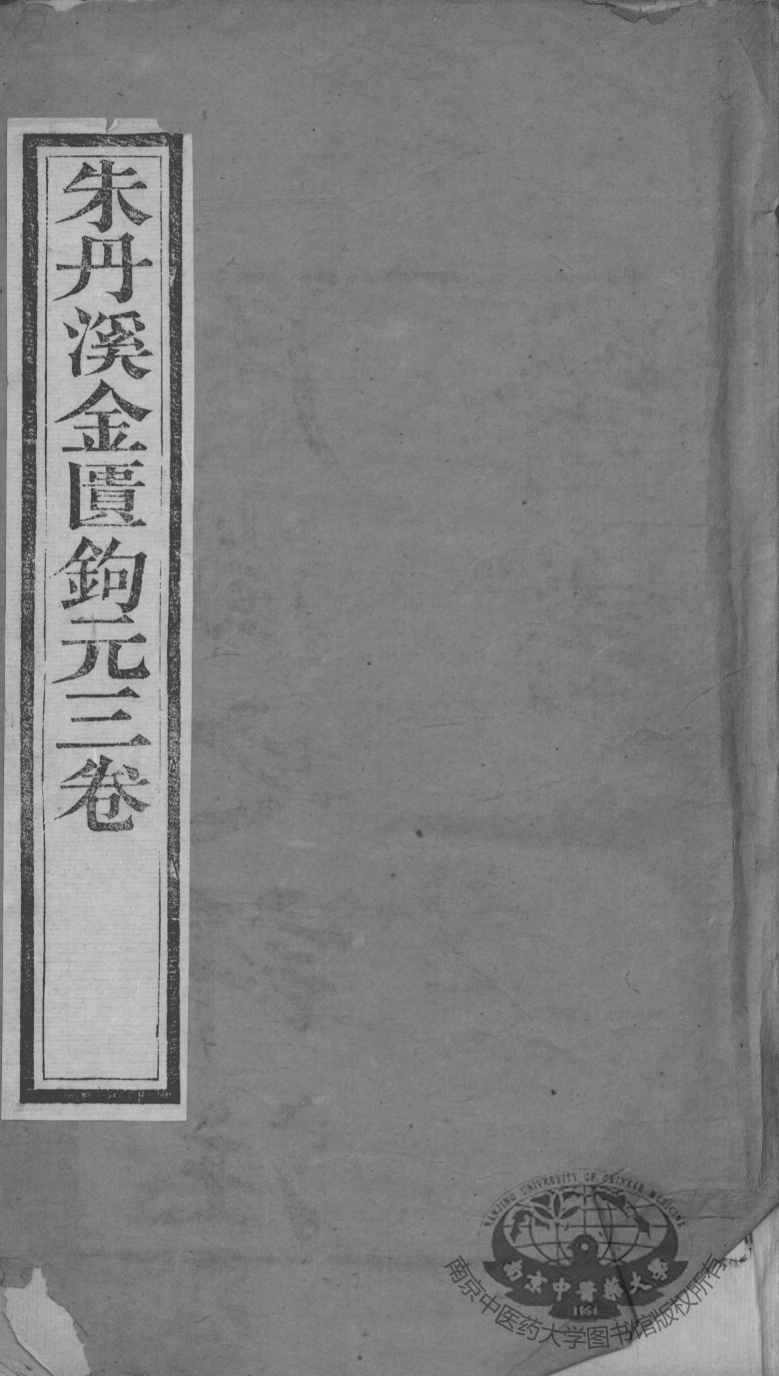 朱丹溪金匱鉤元三卷
NANJING UNIVERSITY OF CHINESE MEDICINE
南京中醫药大學
1954
南京中医药大学图书馆版权所有